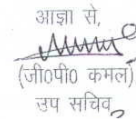 आज्ञा से,
(जी0पी0 कमल)
उप सचिव